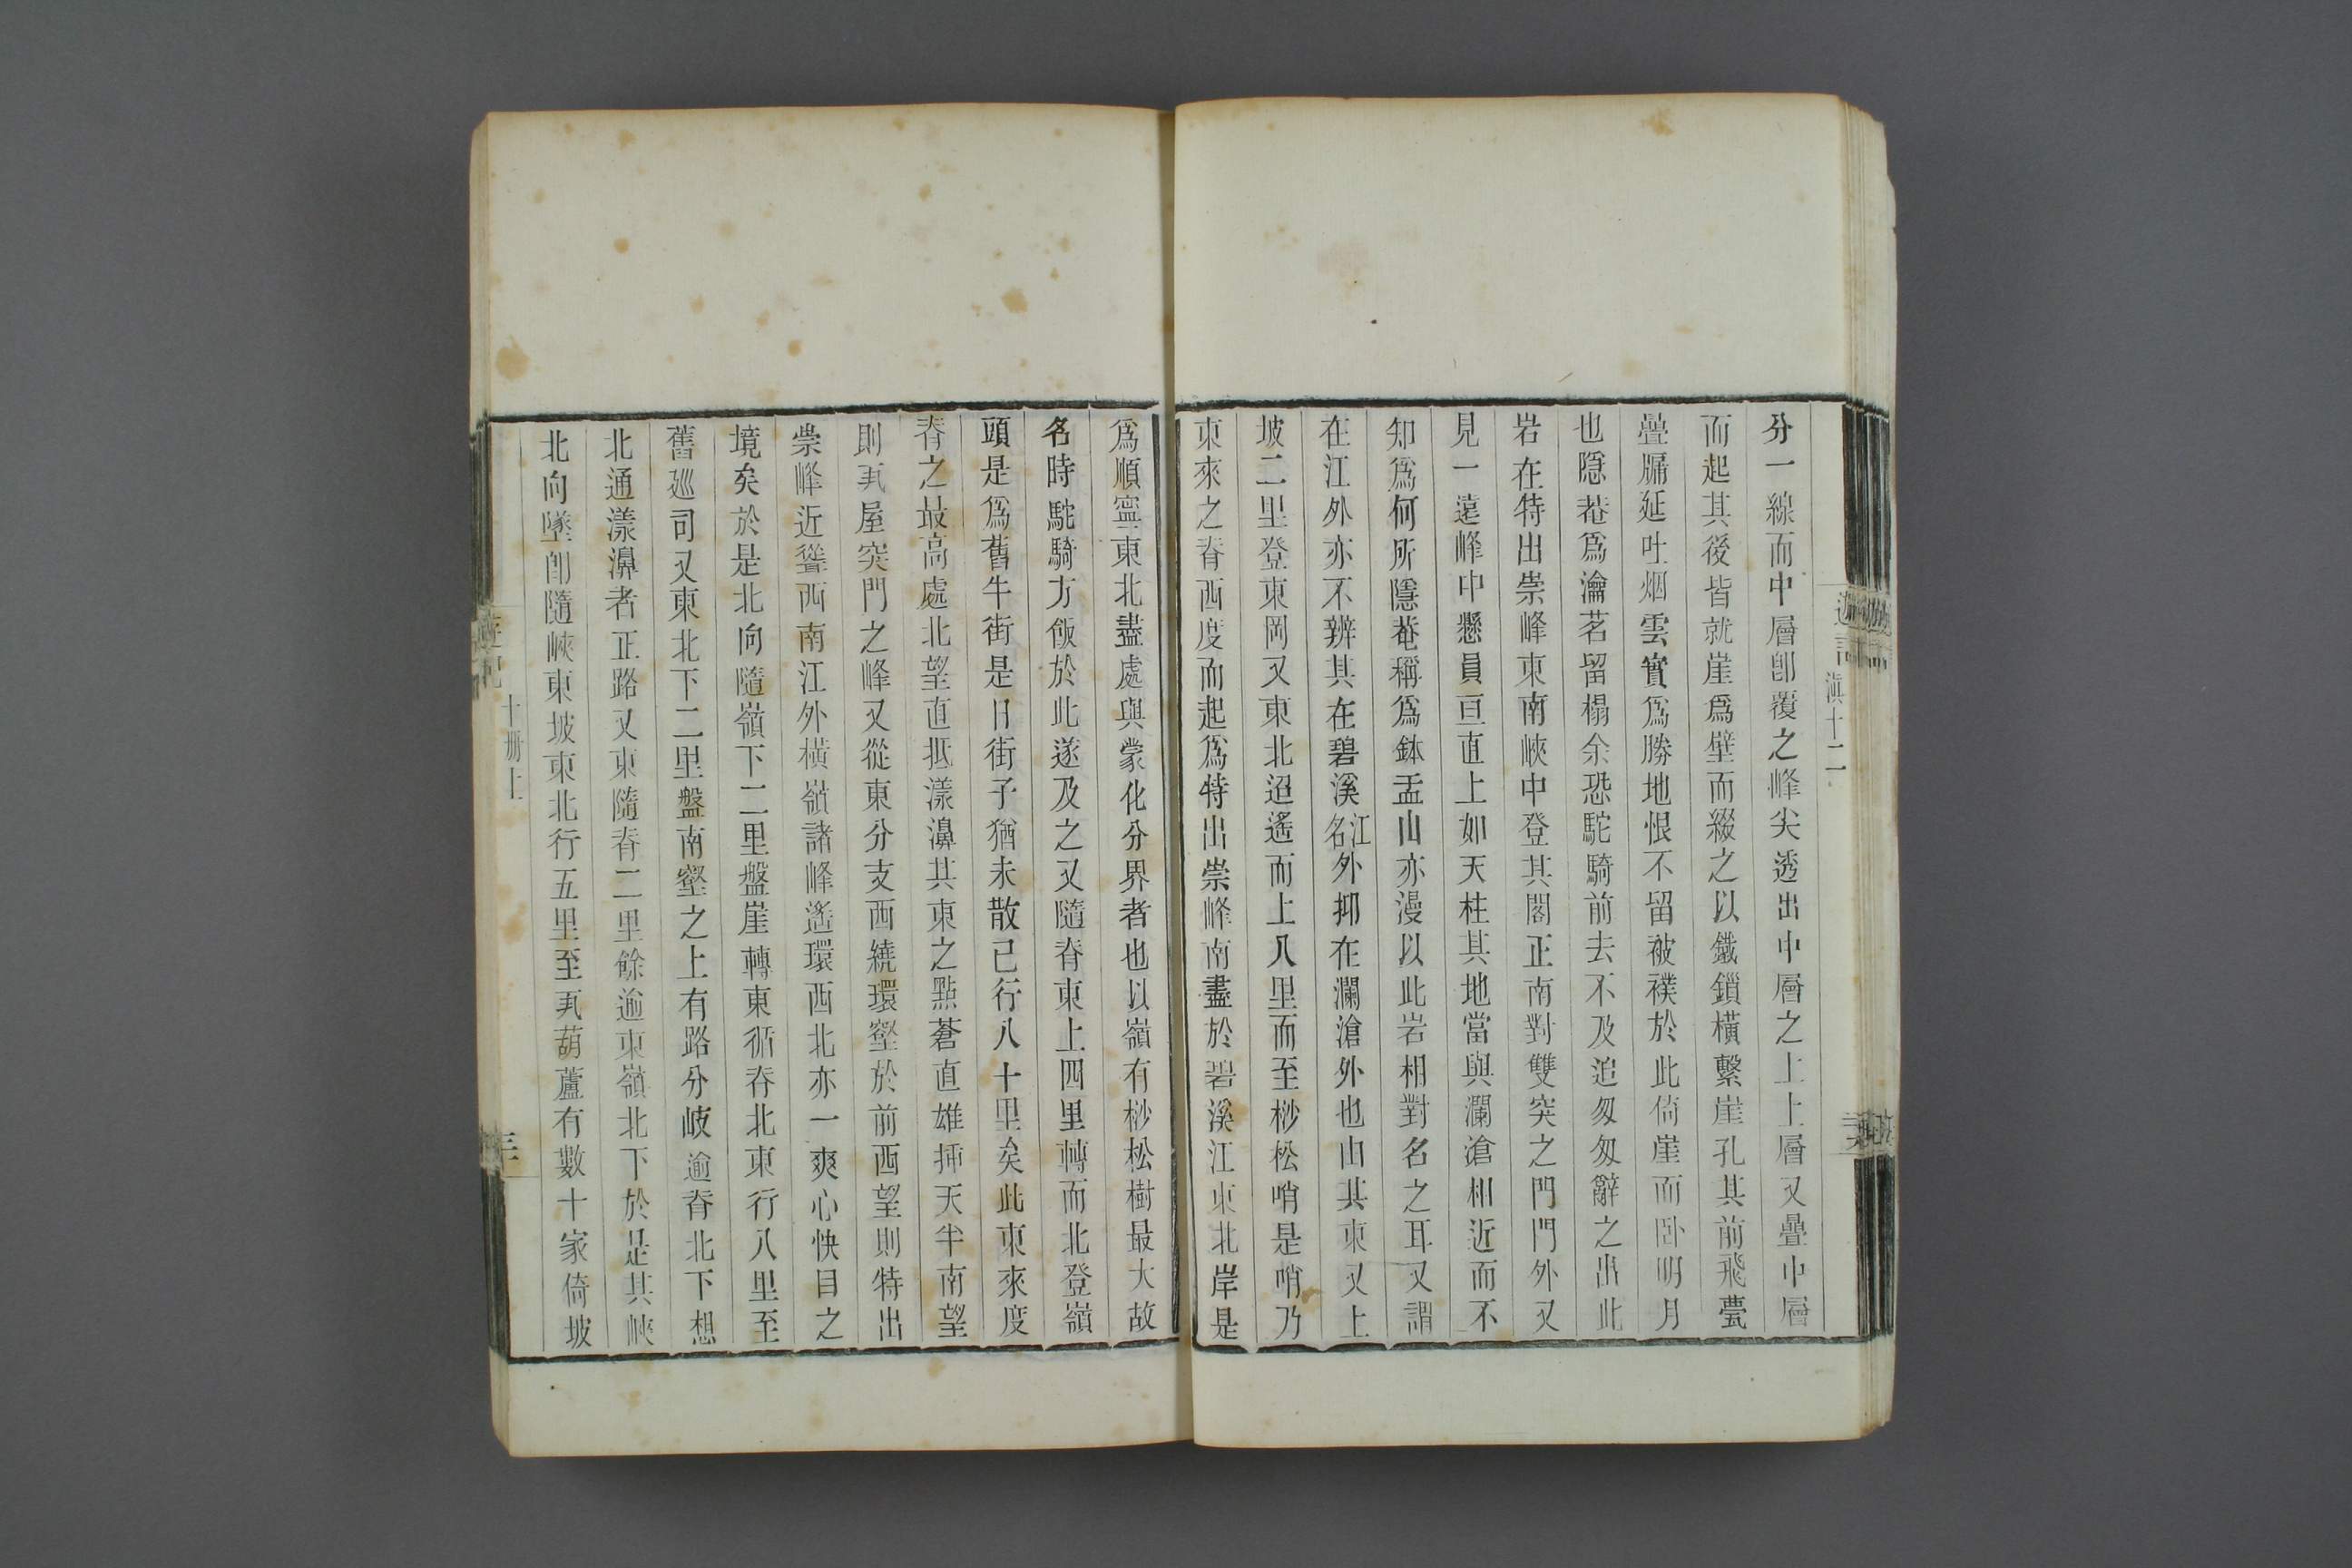 滇十二
分一線而中層卽覆之峰尖透出中層之上上層又疊中層
而起其後皆就崖爲壁而綴之以鐵鎖橫繫崖孔其前飛甍
疊牖延吐烟雲實爲勝地恨不留被襆於此倚崖而卧明月
也隱菴爲瀹茗留榻余恐駝騎前去不及追匆匆辭之出此
岩在特出崇峰東南峽中登其閣正南對雙突之門門外又
見一遠峰中懸員亘直上如天柱其地當與瀾滄相近而不
知爲何所隱菴稱爲鉢盂山亦漫以此岩相對名之耳又謂
在江外亦不辨其在碧溪江名外抑在瀾滄外也由其東又上
坡二里登東岡又東北迢遙而上八里而至桫松哨是哨乃
東來之脊西度而起爲特出崇峰南盡於碧溪江東北岸是
爲順寧東北盡處與蒙化分界者也以嶺有桫松樹最大故
名時駝騎方飯於此遂及之又隨脊東上四里轉而北登嶺
頭是爲舊牛街是日街子猶未散已行八十里矣此東來度
脊之最高處北望直抵漾濞其東之點蒼直雄挿天半南望
則瓦屋突門之峰又從東分支西繞環壑於前西望則特出
崇峰近聳西南江外橫嶺諸峰遙環西北亦一爽心快目之
境矣於是北向隨嶺下二里盤崖轉東循脊北東行八里至
舊廵司又東北下二里盤南壑之上有路分岐逾脊北下想
北通漾濞者正路又東隨脊二里餘逾東嶺北下於是其峽
北向墜卽隨峽東坡東北行五里至瓦葫蘆有數十家倚坡
遊記
十册上